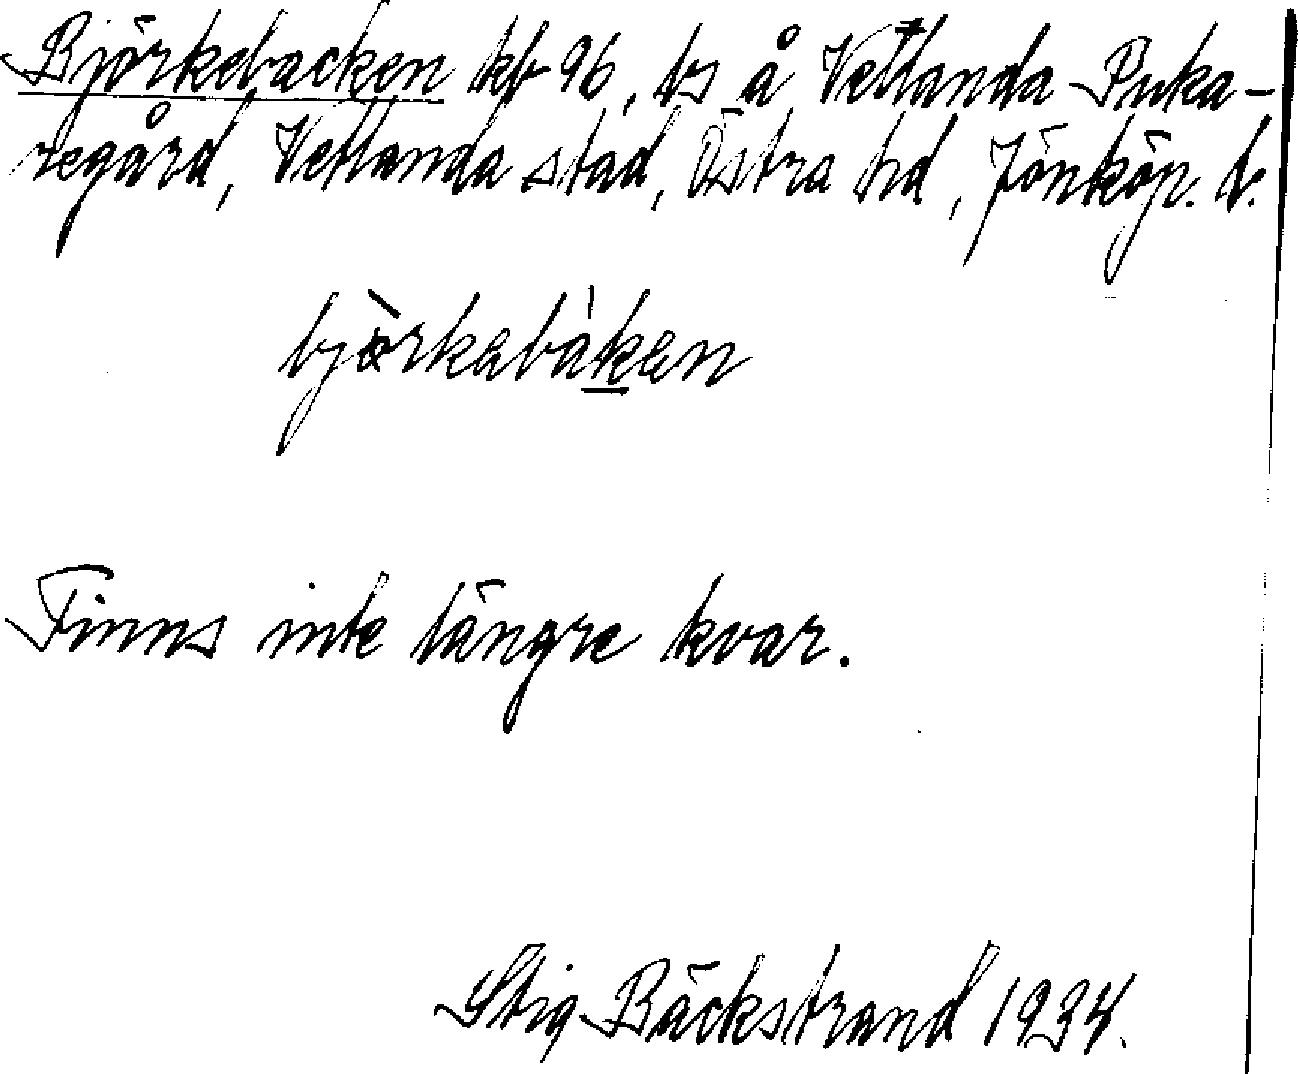 Björkebacken kb 96, ls å Vetlanda Puka-
regård, Vetlanda stad, Östra hd, Jönköp. l.
björkabàkan
Finns inte längre kvar.
Stig Bäckstrand 1934.